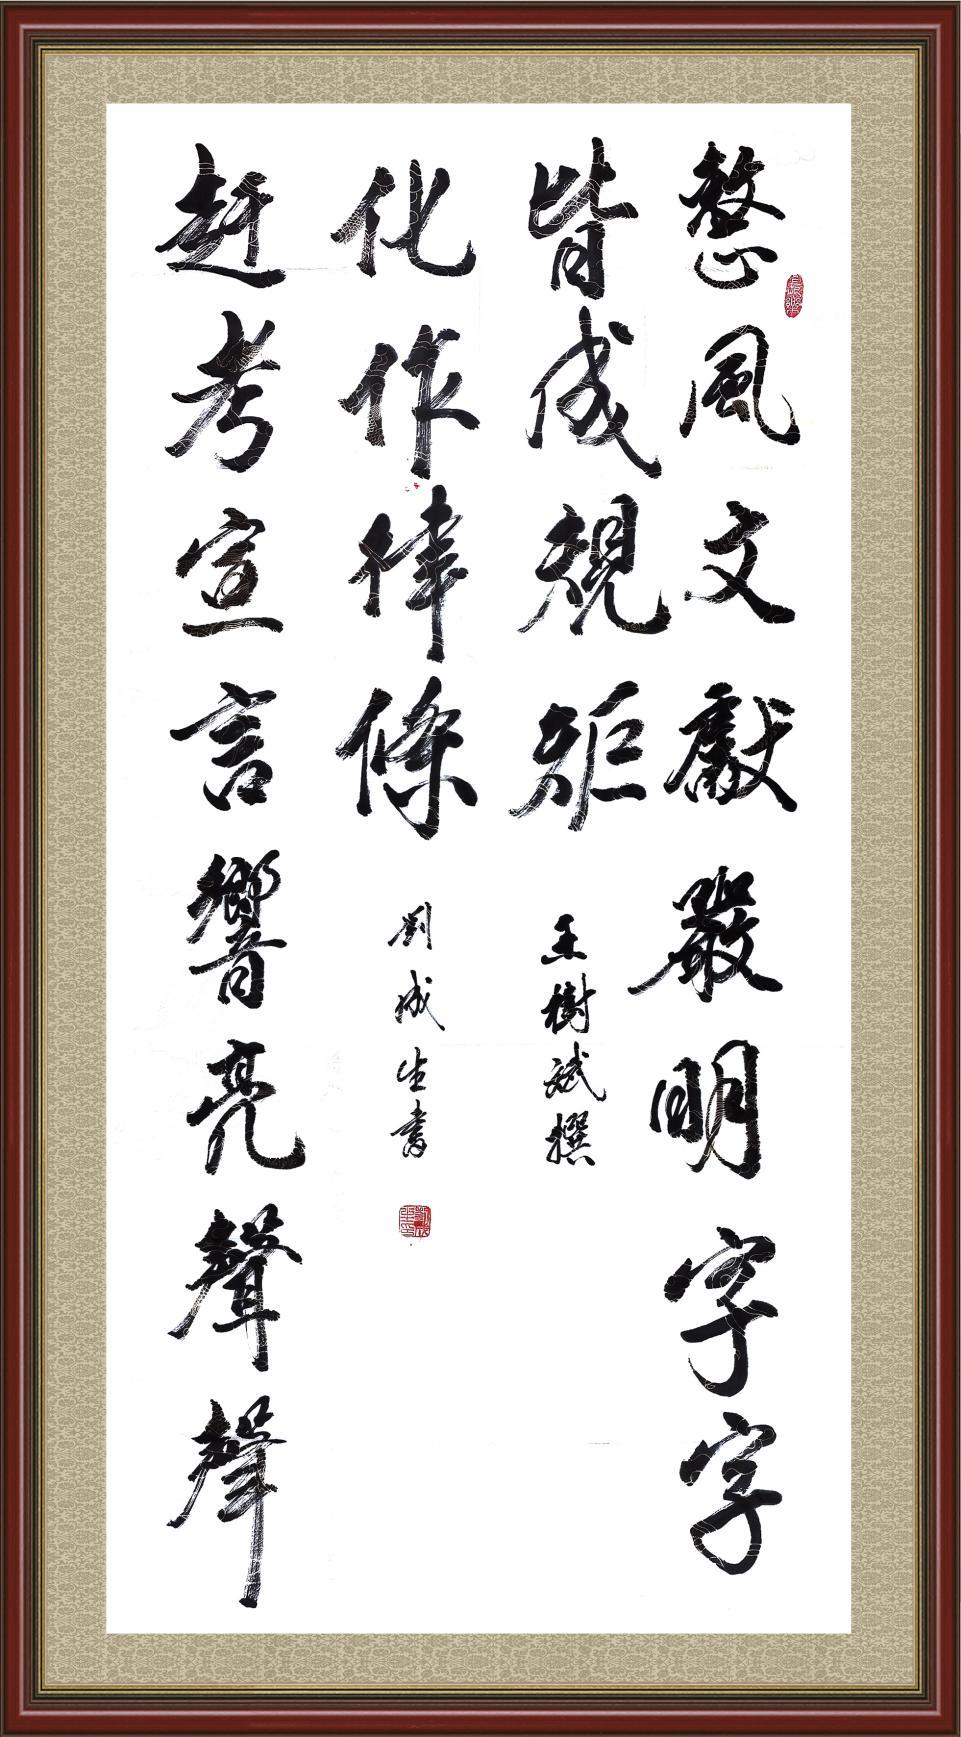 整風文獻嚴明字字
皆成規矩
王樹斌撰
趕考宣言響亮聲聲
化作律條
劉成生書